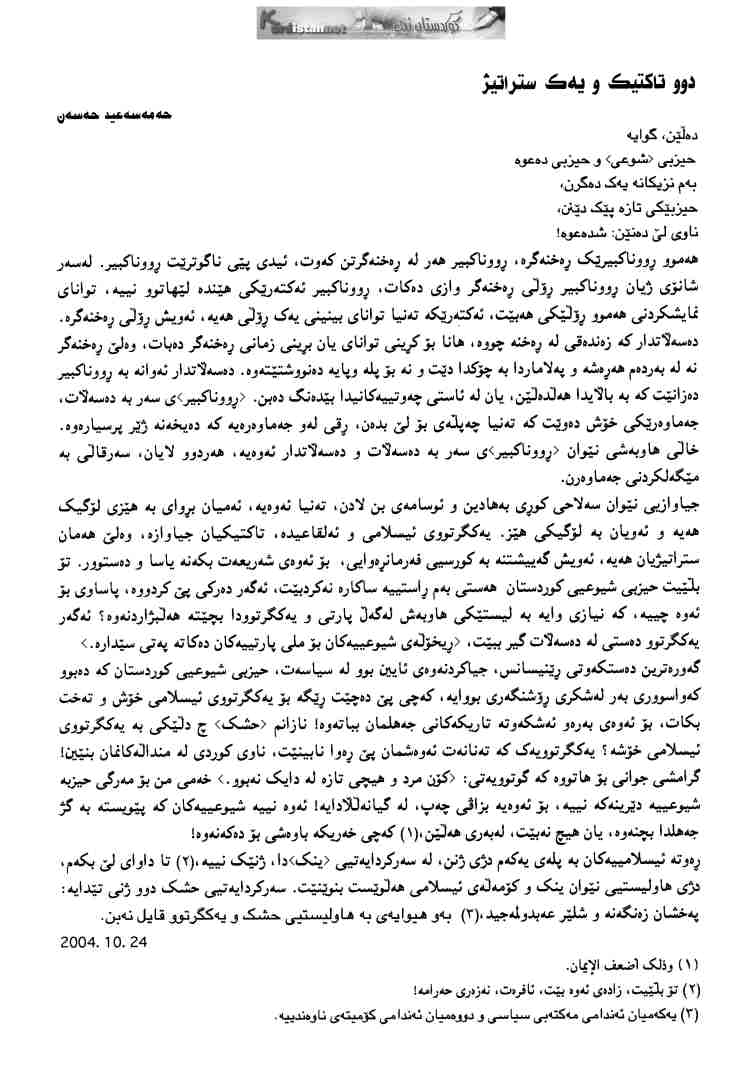 Kurdistannet کوردستان نێت
دوو تاکتیک و یەک ستراتیژ
حەمەسەعید حەسەن
دەڵێن، گوایە
حیزبی <شوعی> و حیزبی دەعوە
بەم نزیکانە یەک دەگرن،
حیزبێکی تازە پێک دێنن،
ناوی لێ دەنێن: شدەعوە!
هەموو ڕووناکبیرێک ڕەخنەگرە، ڕووناکبیر هەر لە ڕەخنەگرتن کەوت، ئیدی پێی ناگوترێت ڕووناکبیر. لەسەر
شانۆی ژیان ڕووناکبیر ڕۆڵی ڕەخنەگر وازی دەکات، ڕووناکبیر ئەکتەرێکی هێندە لێهاتوو نییە، توانای
نمایشکردنی هەموو ڕۆڵێکی هەبێت، ئەکتەرێکە تەنیا توانای بینینی یەک ڕۆڵی هەیە، ئەویش ڕۆڵی ڕەخنەگرە.
دەسەڵاتدار کە زەندەقی لە ڕەخنە چووە، هانا بۆ کڕینی توانای یان بڕینی زمانی ڕەخنەگر دەبات، وەلێ ڕەخنەگر
نە لە بەردەم هەڕەشە و پەلاماردا بە چۆکدا دێت و نە بۆ پلە وپایە دەنووشتێتەوە. دەسەڵاتدار ئەوانە بە ڕووناکبیر
دەزانێت کە بە باڵایدا هەڵدەڵێن، یان لە ئاستی چەوتییەکانیدا بێدەنگ دەبن. <ڕووناکبیر>ی سەر بە دەسەڵات،
جەماوەرێکی خۆش دەوێت کە تەنیا چەپڵەی بۆ لێ بدەن، ڕقی لەو جەماوەرەیە کە دەیخەنە ژێر پرسیارەوە.
خاڵی هاوبەشی نێوان <ڕووناکبیر>ی سەر بە دەسەڵات و دەسەڵاتدار ئەوەیە، هەردوو لایان، سەرقاڵی بە
مێگەلکردنی جەماوەرن.
جیاوازیی نێوان سەلاحی کوڕی بەهادین و ئوسامەی بن لادن، تەنیا ئەوەیە، ئەمیان بڕوای بە هێزی لۆگیک
هەیە و ئەویان بە لۆگیکی هێز. یەکگرتووی ئیسلامی و ئەلقاعیدە، تاکتیکیان جیاوازە، وەلێ هەمان
ستراتیژیان هەیە، ئەویش گەییشتنە بە کورسیی فەرمانڕەوایی، بۆ ئەوەی شەریعەت بکەنە یاسا و دەستوور. تۆ
بڵێیت حیزبی شیوعیی کوردستان هەستی بەم ڕاستییە ساکارە نەکردبێت، ئەگەر دەرکی پێ کردووە، پاساوی بۆ
ئەوە چییە، کە نیازی وایە بە لیستێکی هاوبەش لەگەڵ پارتی و یەکگرتوودا بچێتە هەڵبژاردنەوە؟ ئەگەر
یەکگرتوو دەستی لە دەسەڵات گیر ببێت، <ڕیخۆڵەی شیوعییەکان بۆ ملی پارتییەکان دەکاتە پەتی سێدارە.>
گەورەترین دەستکەوتی ڕێنیسانس، جیاکردنەوەی ئایین بوو لە سیاسەت، حیزبی شیوعیی کوردستان کە دەبوو
کەواسووری بەر لەشکری ڕۆشنگەری بووایە، کەچی پێ دەچێت ڕێگە بۆ یەکگرتووی ئیسلامی خۆش و تەخت
بکات، بۆ ئەوەی بەرەو ئەشکەوتە تاریکەکانی جەهلمان بباتەوە! نازانم <حشک> چ دڵێکی بە یەکگرتووی
ئیسلامی خۆشە؟ یەکگرتوویەک کە تەنانەت ئەوەشمان پێ ڕەوا نابینێت، ناوی کوردی لە منداڵەکانمان بنێین!
گرامشی جوانی بۆ هاتووە کە گوتوویەتی: <کۆن مرد و هیچی تازە لە دایک نەبوو.> خەمی من بۆ مەرگی حیزبە
شیوعییە دێرینەکە نییە، بۆ ئەوەیە بزاڤی چەپ، لە گیانەڵلادایە! ئەوە نییە شیوعییەکان کە پێویستە بە گژ
جەهلدا بچنەوە، یان هیچ نەبێت، لەبەری هەڵێن،(١) کەچی خەریکە باوەشی بۆ دەکەنەوە!
ڕەوتە ئیسلامییەکان بە پلەی یەکەم دژی ژنن، لە سەرکردایەتیی <ینک>دا، ژنێک نییە،(٢) تا داوای لێ بکەم،
دژی هاولیستیی نێوان ینک و کۆمەڵەی ئیسلامی هەڵوێست بنوێنێت. سەرکردایەتیی حشک دوو ژنی تێدایە:
پەخشان زەنگەنە و شلێر عەبدولمەجید،(٣) بەو هیوایەی بە هاولیستیی حشک و یەکگرتوو قایل نەبن.
2004. 10. 24
(١) وذلک أضعف الإیمان.
(٢) تۆ بڵێیت، زادەی ئەوە بێت، ئافرەت، نەزەری حەرامە!
(٣) یەکەمیان ئەندامی مەکتەبی سیاسی و دووەمیان ئەندامی کۆمیتەی ناوەندییە.